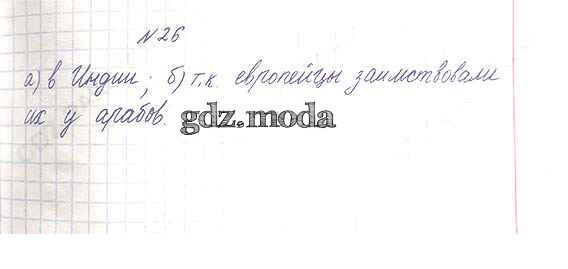 №26
а) в Индии; б) т.к. европейцы заимствовали
их у арабов.
gdz.moda